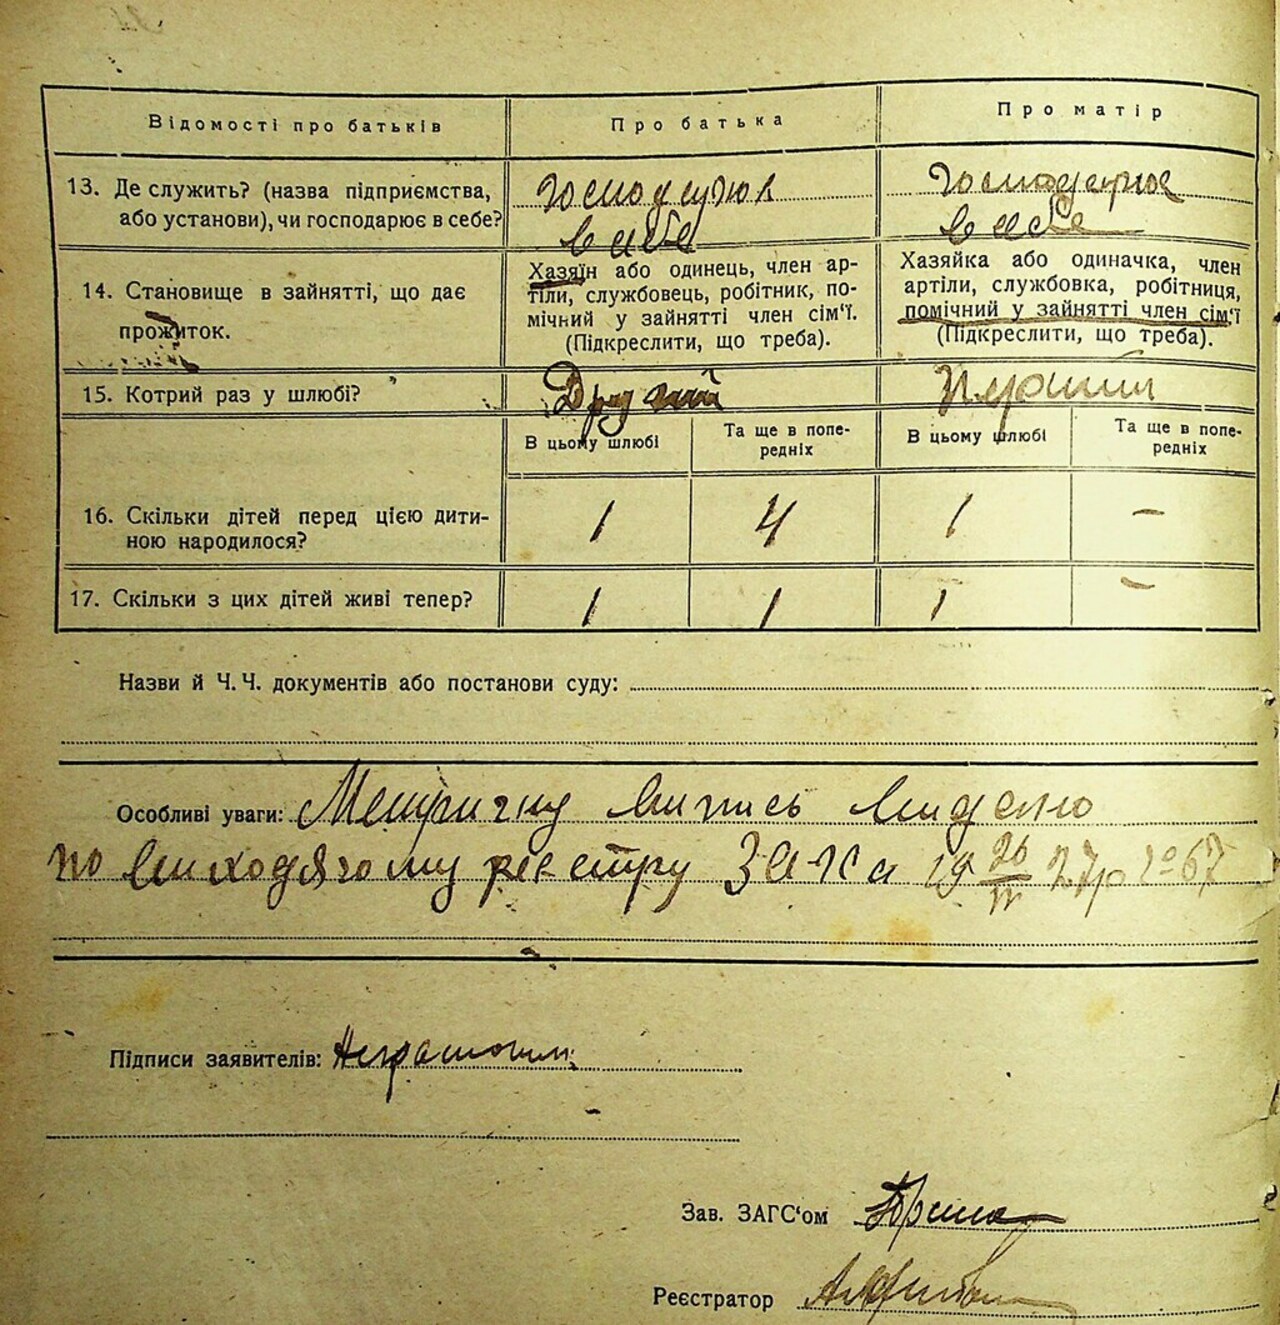 Відомості про батьків
Про батька
Про матір
13. Де служить? (назва підприємства,
або установи), чи господарює в себе?
в себе
в себе
14. Становище в зайнятті, що дає
прожиток.
Хазяїн або одинець, член ар-
тіли, службовець, робітник, по-
мічний у зайнятті член сім'ї.
(Підкреслити, що треба).
Хазяйка або одиначка, член
артіли, службовка, робітниця,
помічний у зайнятті член сім'ї
(Підкреслити, що треба).
15. Котрий раз у шлюбі?
Другий
Перший
В цьому шлюбі
Та ще в попе-
редніх
В цьому шлюбі
Та ще в попе-
редніх
16. Скільки дітей перед цією дити-
ною народилося?
1
4
1
–
17. Скільки з цих дітей живі тепер?
1
1
1
–
Назви й Ч. Ч. документів або постанови суду:
Особливі уваги: Метричну випись видано
по виходячому реєстру ЗАГСа 19 26/IV 27р № 67
Підписи заявителів:
Зав. ЗАГС'ом
Реєстратор